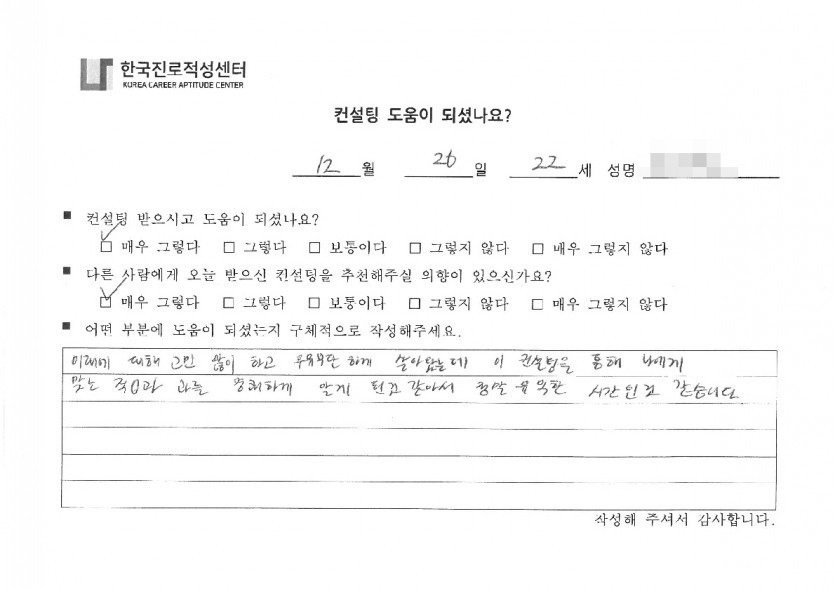 한국진로적성센터
KOREA CAREER APTITUDE CENTER
컨설팅 도움이 되셨나요?
12 월 26 일 22 세 성명
■ 컨설팅 받으시고 도움이 되셨나요?
☑ 매우 그렇다 □ 그렇다 □ 보통이다 □ 그렇지 않다 □ 매우 그렇지 않다
■ 다른 사람에게 오늘 받으신 컨설팅을 추천해주실 의향이 있으신가요?
☑ 매우 그렇다 □ 그렇다 □ 보통이다 □ 그렇지 않다 □ 매우 그렇지 않다
■ 어떤 부분에 도움이 되셨는지 구체적으로 작성해주세요.
미래에 대해 고민 많이 하고 우유부단 하게 살아왔는데 이 컨설팅을 통해 나에게
맞는 직업과 과를 명확하게 알게 된것 같아서 정말 유익한 시간인 것 같습니다.
작성해 주셔서 감사합니다.